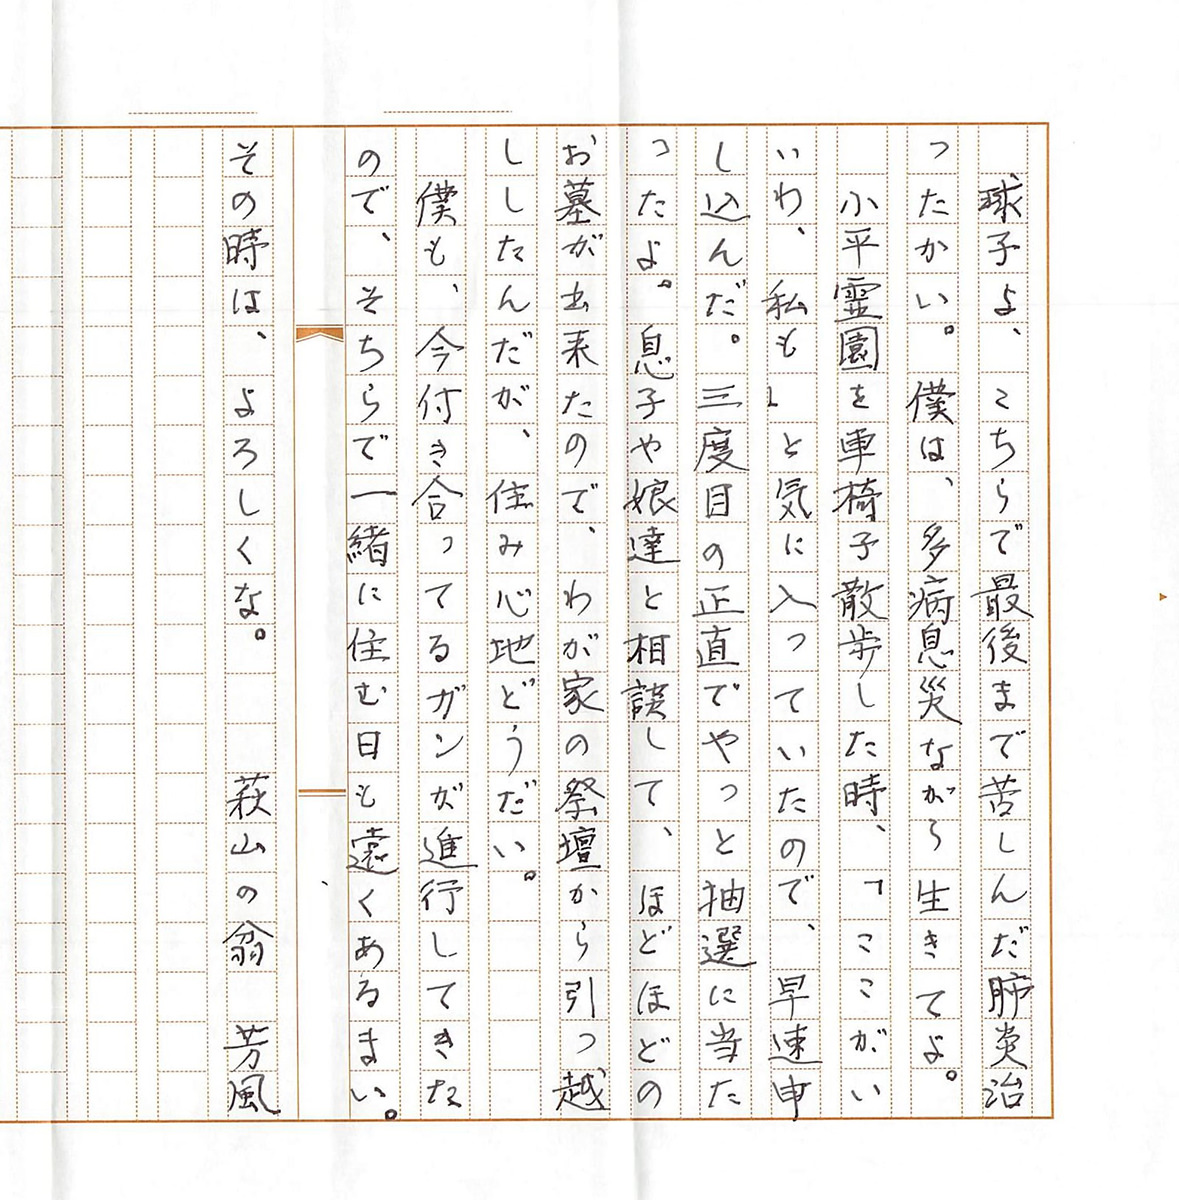 球子よ、こちらで最後まで苦しんだ肺炎治
ったかい。僕は、多病息災ながら生きてよ。
小平霊園を車椅子散歩した時、「ここがい
いわ、私も」と気に入っていたので、早速申
し込んだ。三度目の正直でやっと抽選に当た
ったよ。息子や娘達と相談して、ほどほどの
お墓が出来たので、わが家の祭壇から引っ越
ししたんだが、住み心地どうだい。
僕も、今付き合ってるガンが進行してきた
ので、そちらで一緒に住む日も遠くあるまい。
その時は、よろしくな。 萩山の翁 芳風